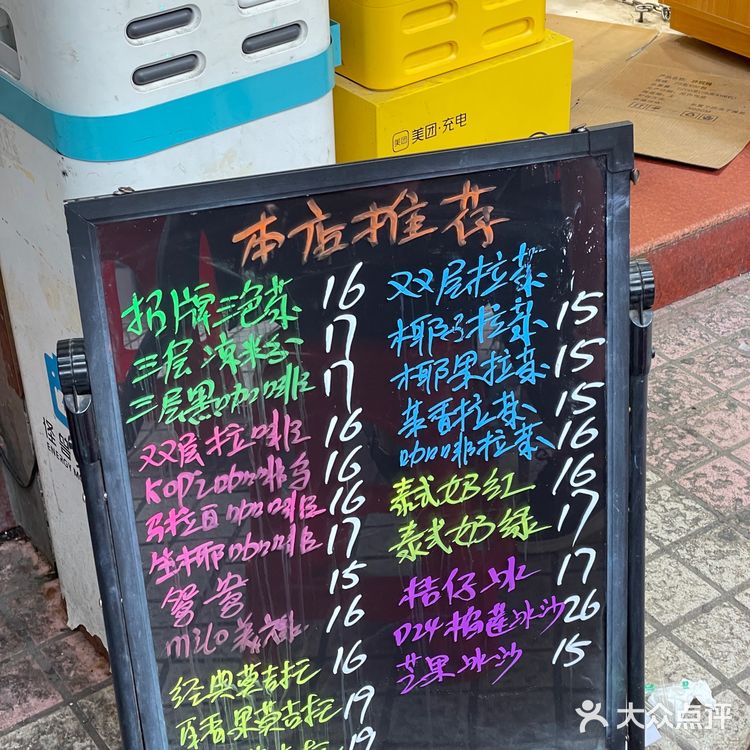 美团 美团·充电
本店推荐
招牌三泡茶 16
三层凉粉 17
三层黑咖啡 17
双层拉啡 16
KOPZ咖啡乌 16
马拉白咖啡 16
生椰咖啡 17
鸳鸯 15
milo美禄 16
经典莫吉托 16
百香果莫吉托 19
19
双层拉茶
椰奶拉茶 15
椰果拉茶 15
茉香拉茶 15
咖啡拉茶 16
泰式奶红 16
泰式奶绿 17
桔仔冰 17
D24榴莲冰沙 26
芒果冰沙 15
大众点评